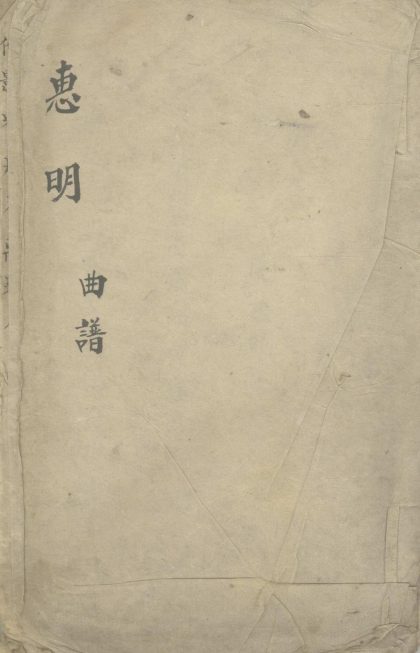 惠明
曲譜